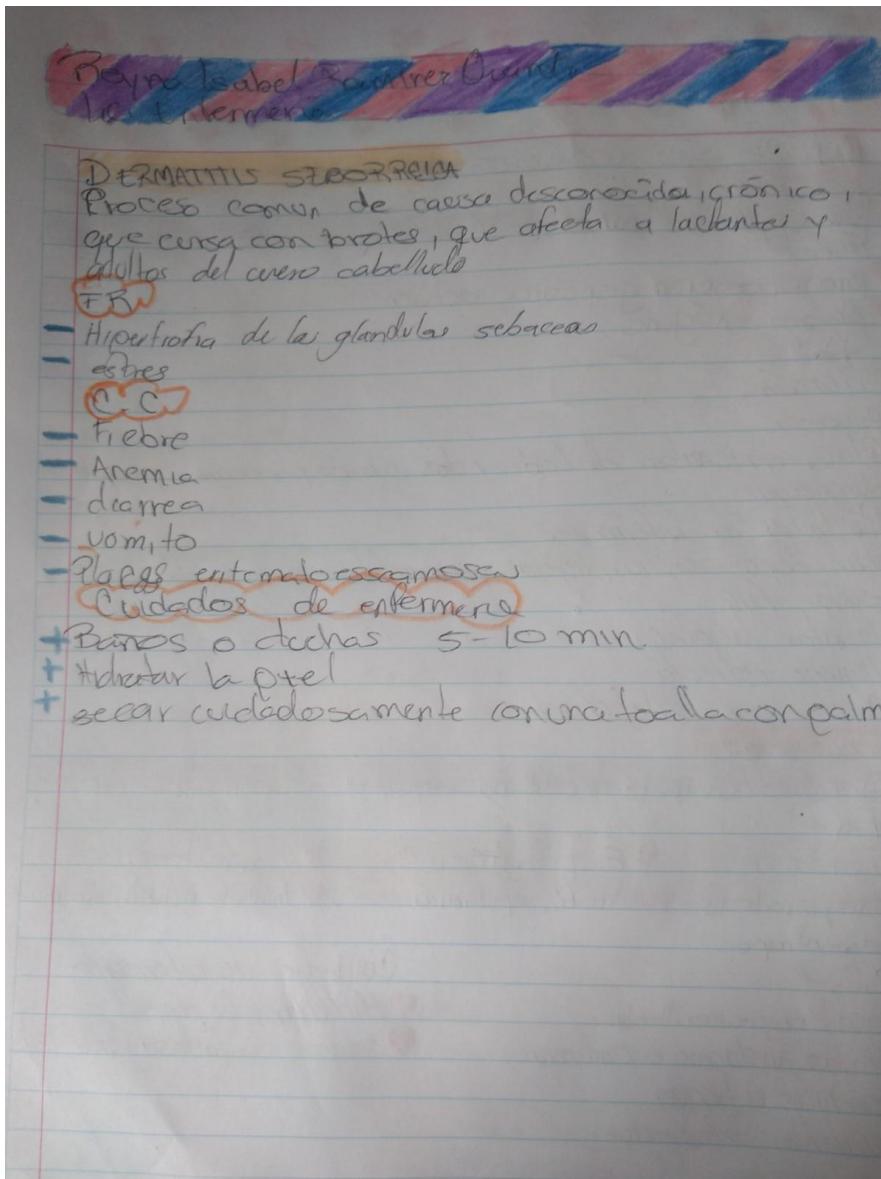 Reyna Isabel Ramirez
Lic. Enfermeria
DERMATITIS SEBORREICA
Proceso comun de causa desconocida, crónico,
que cursa con brotes, que afecta a lactantes y
adultos del cuero cabelludo
FR
- Hipertrofia de las glandulas sebaceas
- estres
C.C
- Fiebre
- Anemia
- diarrea
- vomito
- Placas eritematoescamosas
Cuidados de enfermeria
+ Baños o duchas 5-10 min
+ Hidratar la piel
+ secar cuidadosamente con una toalla con palm